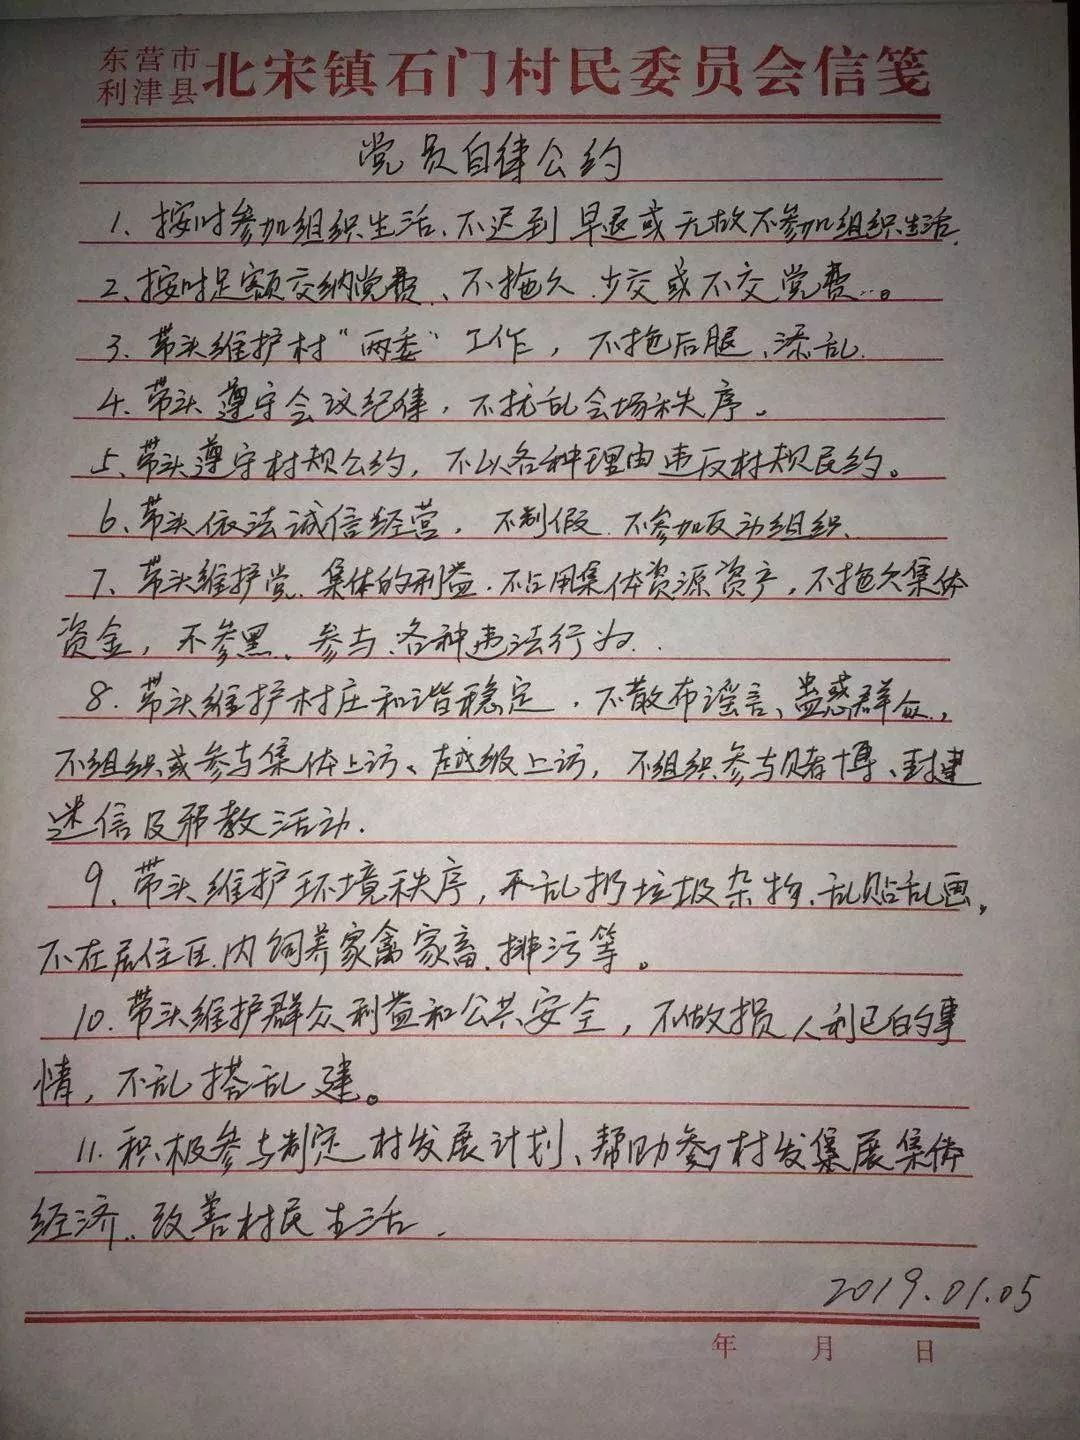 东营市
利津县
北宋镇石门村民委员会信笺
党员自律公约
1、按时参加组织生活、不迟到 早退或无故不参加组织生活.
2、按时足额交纳党费、不拖欠.少交或不交党费..。
3、带头维护村“两委”工作，不拖后腿、添乱.
4、带头遵守会议纪律，不扰乱会场秩序。
5、带头遵守村规公约，不以各种理由违反村规民约。
6、带头依法诚信经营，不制假.不参加反动组织、
7、带头维护党.集体的利益.不占用集体资源资产，不拖欠集体
资金，不参黑、参与.各种违法行为..
8.带头维护村庄和谐稳定.不散布谣言、蛊惑群众，
不组织或参与集体上访、越级上访，不组织参与赌博、封建
迷信及邪教活动.
9、带头维护环境秩序，不乱扔垃圾杂物、乱贴乱画，
不在居住区内饲养家禽家畜.排污等。
10.带头维护群众利益和公共安全，不做损人利己的事
情，不乱搭乱建。
11.积极参与制定村发展计划、帮助村发展集体
经济、改善村民生活.
2019.01.05
年 月 日